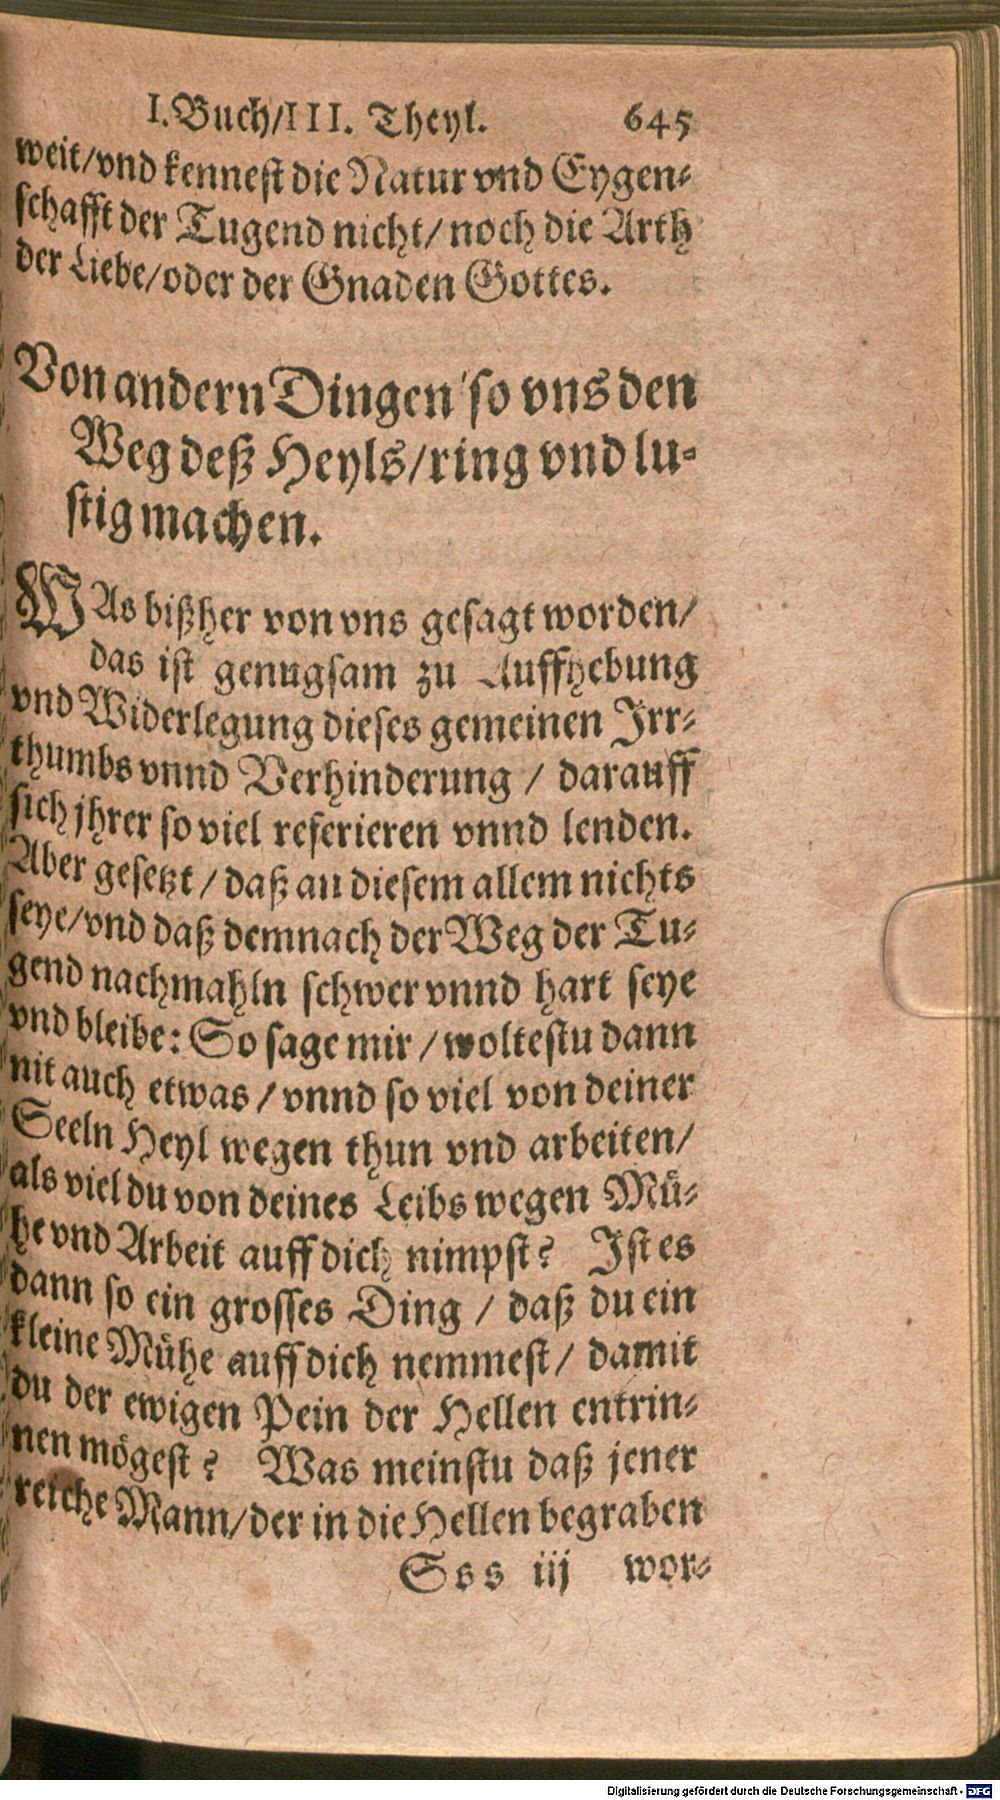 I. Buch/III. Theyl. 645
weit/vnd kennest die Natur vnd Eygen-
schafft der Tugend nicht/ noch die Arth
der Liebe/oder der Gnaden Gottes.
Von andern Dingen so vns den
Weg deß Heyls/ring vnd lu-
stig machen.
WAs bißher von vns gesagt worden/
das ist genugsam zu Auffhebung
vnd Widerlegung dieses gemeinen Irr-
thumbs vnnd Verhinderung / darauff
sich jhrer so viel referieren vnnd lenden.
Aber gesetzt / daß an diesem allem nichts
seye/vnd daß demnach der Weg der Tu-
gend nachmahln schwer vnnd hart seye
vnd bleibe: So sage mir / woltestu dann
nit auch etwas / vnnd so viel von deiner
Seeln Heyl wegen thun vnd arbeiten/
als viel du von deines Leibs wegen Mü-
he vnd Arbeit auff dich nimpst? Ist es
dann so ein grosses Ding / daß du ein
kleine Mühe auff dich nemmest/ damit
du der ewigen Pein der Hellen entrin-
nen mögest? Was meinstu daß jener
reiche Mann/der in die Hellen begraben
Sss iij wor-
Digitalisierung gefördert durch die Deutsche Forschungsgemeinschaft - DFG